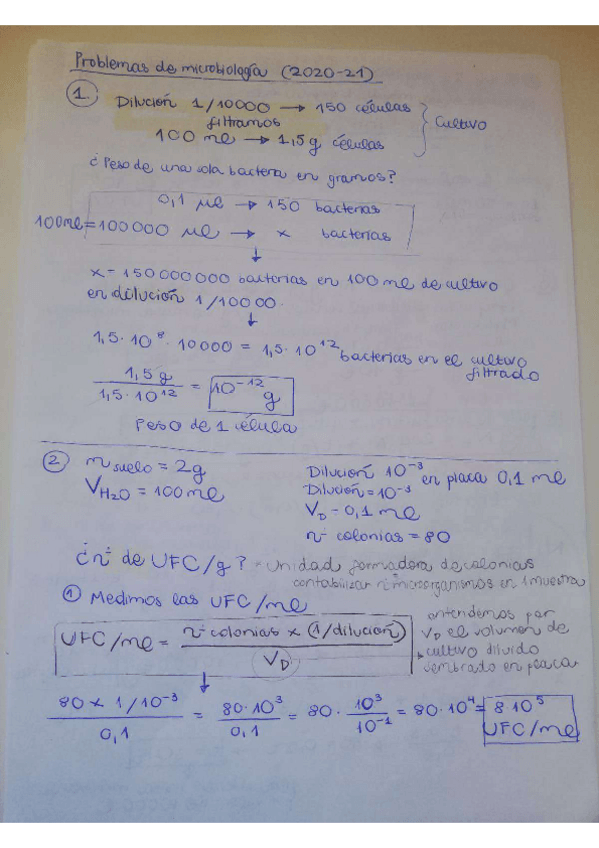 Problemas de microbiología (2020-21)
1. Dilución 1/10000 → 150 células
filtramos
100 ml → 1,5 g células
Cultivo
¿Peso de una sola bacteria en gramos?
0,1 μl → 150 bacterias
100ml = 100000 μl → x bacterias
↓
x = 150000000 bacterias en 100 ml de cultivo
en dilución 1/10000.
↓
1,5·10⁸ · 10000 = 1,5·10¹² bacterias en el cultivo
filtrado
1,5 g / 1,5·10¹² = 10⁻¹² g
Peso de 1 célula
2 m suelo = 2g
V H₂O = 100 ml
Dilución 10⁻³ en placa 0,1 ml
Dilución = 10⁻³
V_D = 0,1 ml
nº colonias = 80
¿nº de UFC/g? = Unidad formadora de colonias
contabilizar nº microorganismos en 1 muestra
① Medimos las UFC/ml
UFC/ml = nº colonias x (1/dilución) / V_D
entendemos por
V_D el volumen de
cultivo diluido
sembrado en placa
↓
80 x 1/10⁻³ / 0,1 = 80·10³ / 0,1 = 80 · 10³ / 10⁻¹ = 80·10⁴ = 8·10⁵
UFC/ml